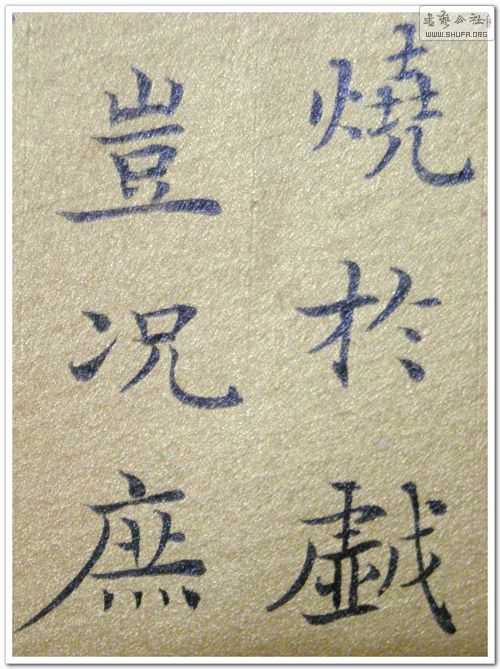 燒於戯
豈况庶
書藝公社
WWW.SHUFA.ORG